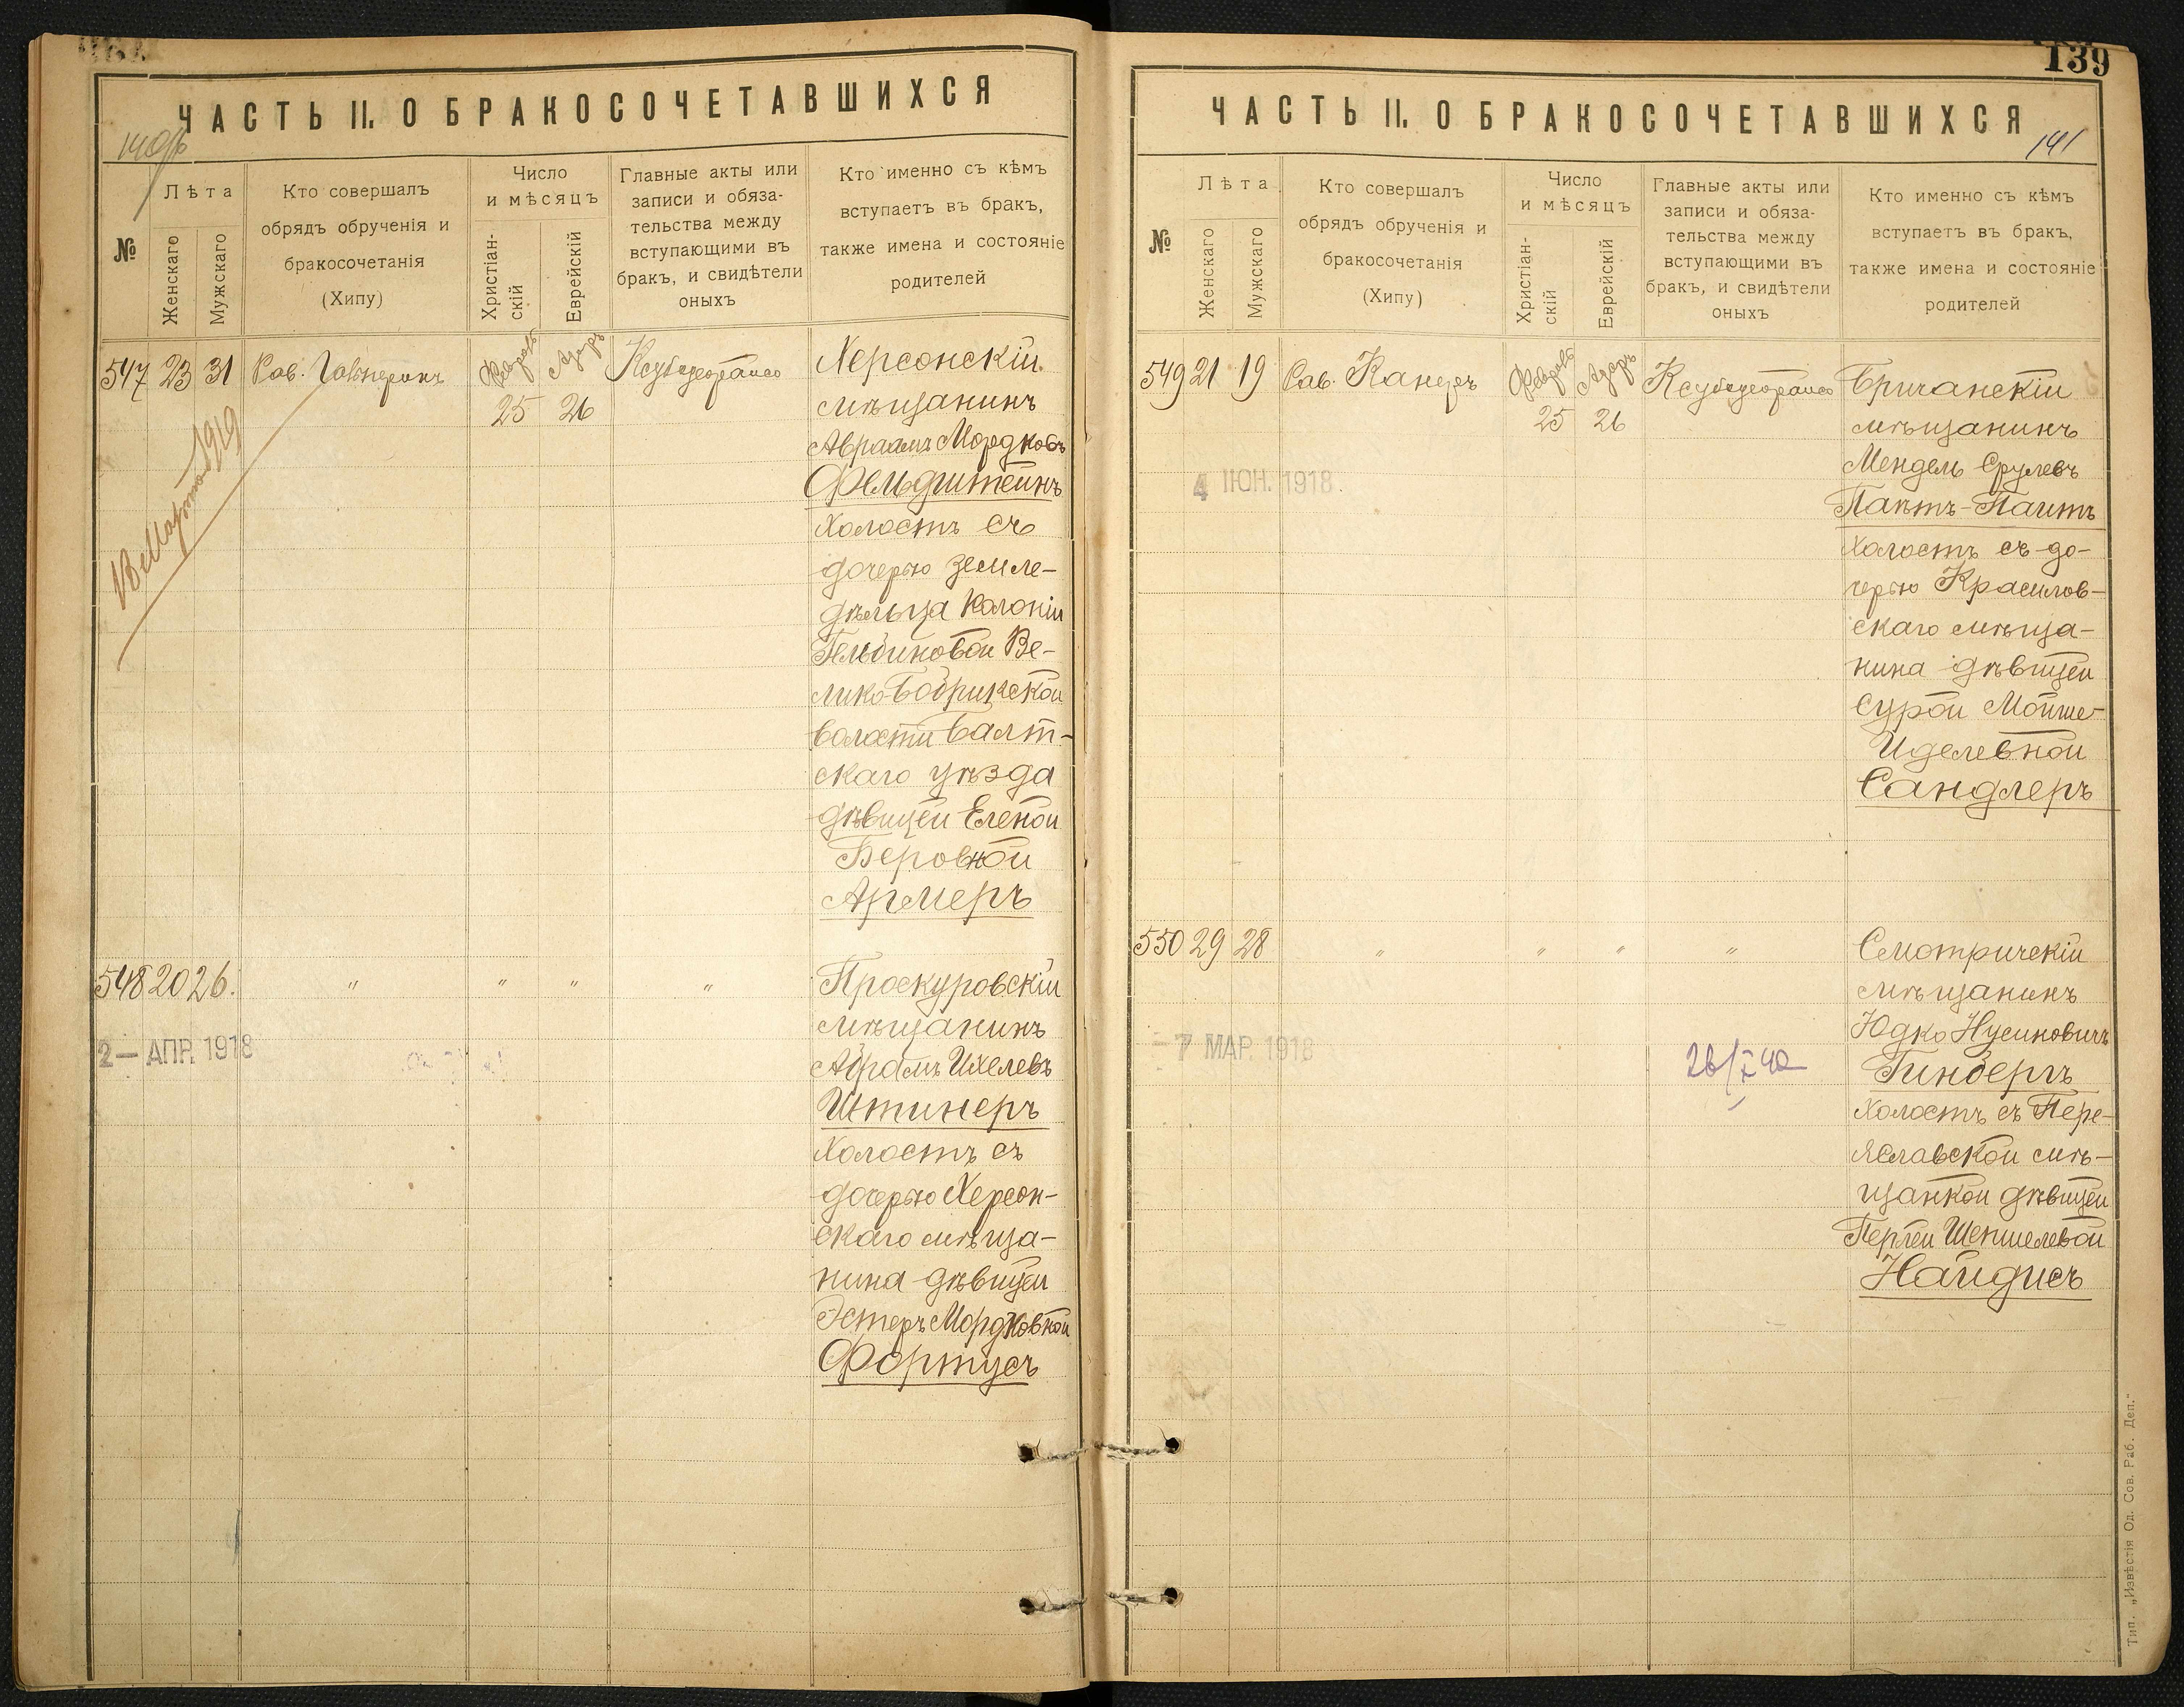 ЧАСТЬ II. О БРАКОСОЧЕТАВШИХСЯ
№
Лѣта
Женскаго
Мужскаго
Кто совершалъ
обрядъ обрученія и
бракосочетанія
(Хипу)
Число
и мѣсяцъ
Христіан-
скій
Еврейскій
Главные акты или
записи и обяза-
тельства между
вступающими въ
бракъ, и свидѣтели
оныхъ
Кто именно съ кѣмъ
вступаетъ въ бракъ,
также имена и состояніе
родителей
547 23 31 Рав.
Февраль Адаръ
25 26
18 Марта 1919
Херсонскій
мѣщанинъ
Авраамъ Мордковъ
Фельдштейнъ
холостъ съ
дочерью земле-
дѣльца колоніи
Гельбиновой Ве-
лико-Бобрикской
волости Балт-
скаго уѣзда
дѣвицей Еленой
Беровной
Армеръ
548 20 26. " " " "
2 - АПР. 1918
Проскуровскій
мѣщанинъ
Абрамъ Ихелевъ
Штинеръ
холостъ съ
дочерью Херсон-
скаго мѣща-
нина дѣвицей
Эстеръ Мордковной
Фортусъ
139
ЧАСТЬ II. О БРАКОСОЧЕТАВШИХСЯ
141
№
Лѣта
Женскаго
Мужскаго
Кто совершалъ
обрядъ обрученія и
бракосочетанія
(Хипу)
Число
и мѣсяцъ
Христіан-
скій
Еврейскій
Главные акты или
записи и обяза-
тельства между
вступающими въ
бракъ, и свидѣтели
оныхъ
Кто именно съ кѣмъ
вступаетъ въ бракъ,
также имена и состояніе
родителей
549 21 19 Рав.
Февраль Адаръ
25 26
4 ІЮН. 1918.
Бричанскій
мѣщанинъ
Мендель Срулевъ
Пактъ-Паитъ
холостъ съ до-
черью Красилов-
скаго мѣща-
нина дѣвицей
Сурой Мойше-
Иделевной
Сандлеръ
550 29 28 " " " "
- 7 МАР. 1918
26/X 40
Смотричскій
мѣщанинъ
Юдко Нусиновичъ
Гинбергъ
холостъ съ Пере-
яславской мѣ-
щанкой дѣвицей
Перлей Шепшелевой
Найдисъ
Тип. „Извѣстія Од. Сов. Раб. Деп."